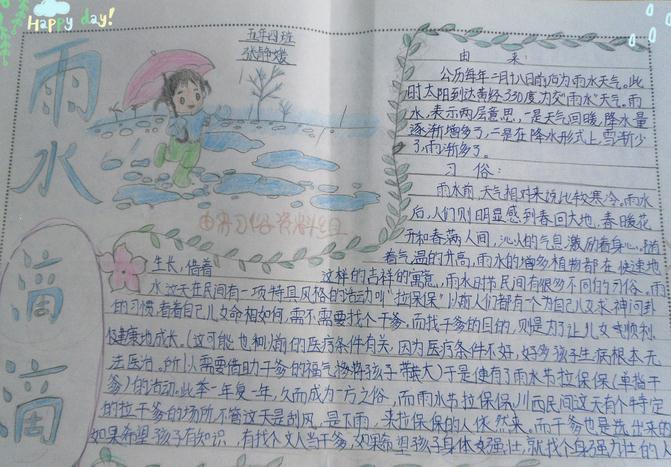 Happy day!
雨水
滴滴
五年四班
张静媛
由来:
公历每年二月十八日前后为雨水天气。此
时太阳到达黄经330度,为交“雨水”天气。雨
水,表示两层意思,一是天气回暖,降水量
逐渐增多了,二是在降水形式上,雪渐少
了,雨渐多了。
习俗:
雨水前,天气相对来说比较寒冷。雨水
后,人们则明显感到春回大地,春暖花
开和春满人间,沁人的气息激励着身心。随
着气温的升高,雨水的增多植物都在快速地
生长,借着
这样的吉祥的寓意,雨水时节民间有很多不同的习俗。雨
水这天在民间有一项特具风格的活动叫“拉保保”。以前人们都有个为自己儿女求神问卦
的习惯,看看自己儿女命相如何,需不需要找个干爹。而找干爹的目的,则是为了让儿女顺利,
健康地成长。(这可能也和以前的医疗条件有关,因为医疗条件不好,好多孩子生病根本无
法医治。所以需要借助干爹的福气接将孩子带大)于是便有了雨水节拉保保(单指干
爹)的活动。此举一年复一年,久而成为一方之俗,而雨水节拉保保,川西民间这天有个特定
的拉干爹的场所。不管这天是刮风,是下雨,来拉保保的人依然来。而干爹也是选出来的
如果希望孩子有知识,有找个文人当干爹,如果希望孩子身体女强壮,就找个身强力壮的人